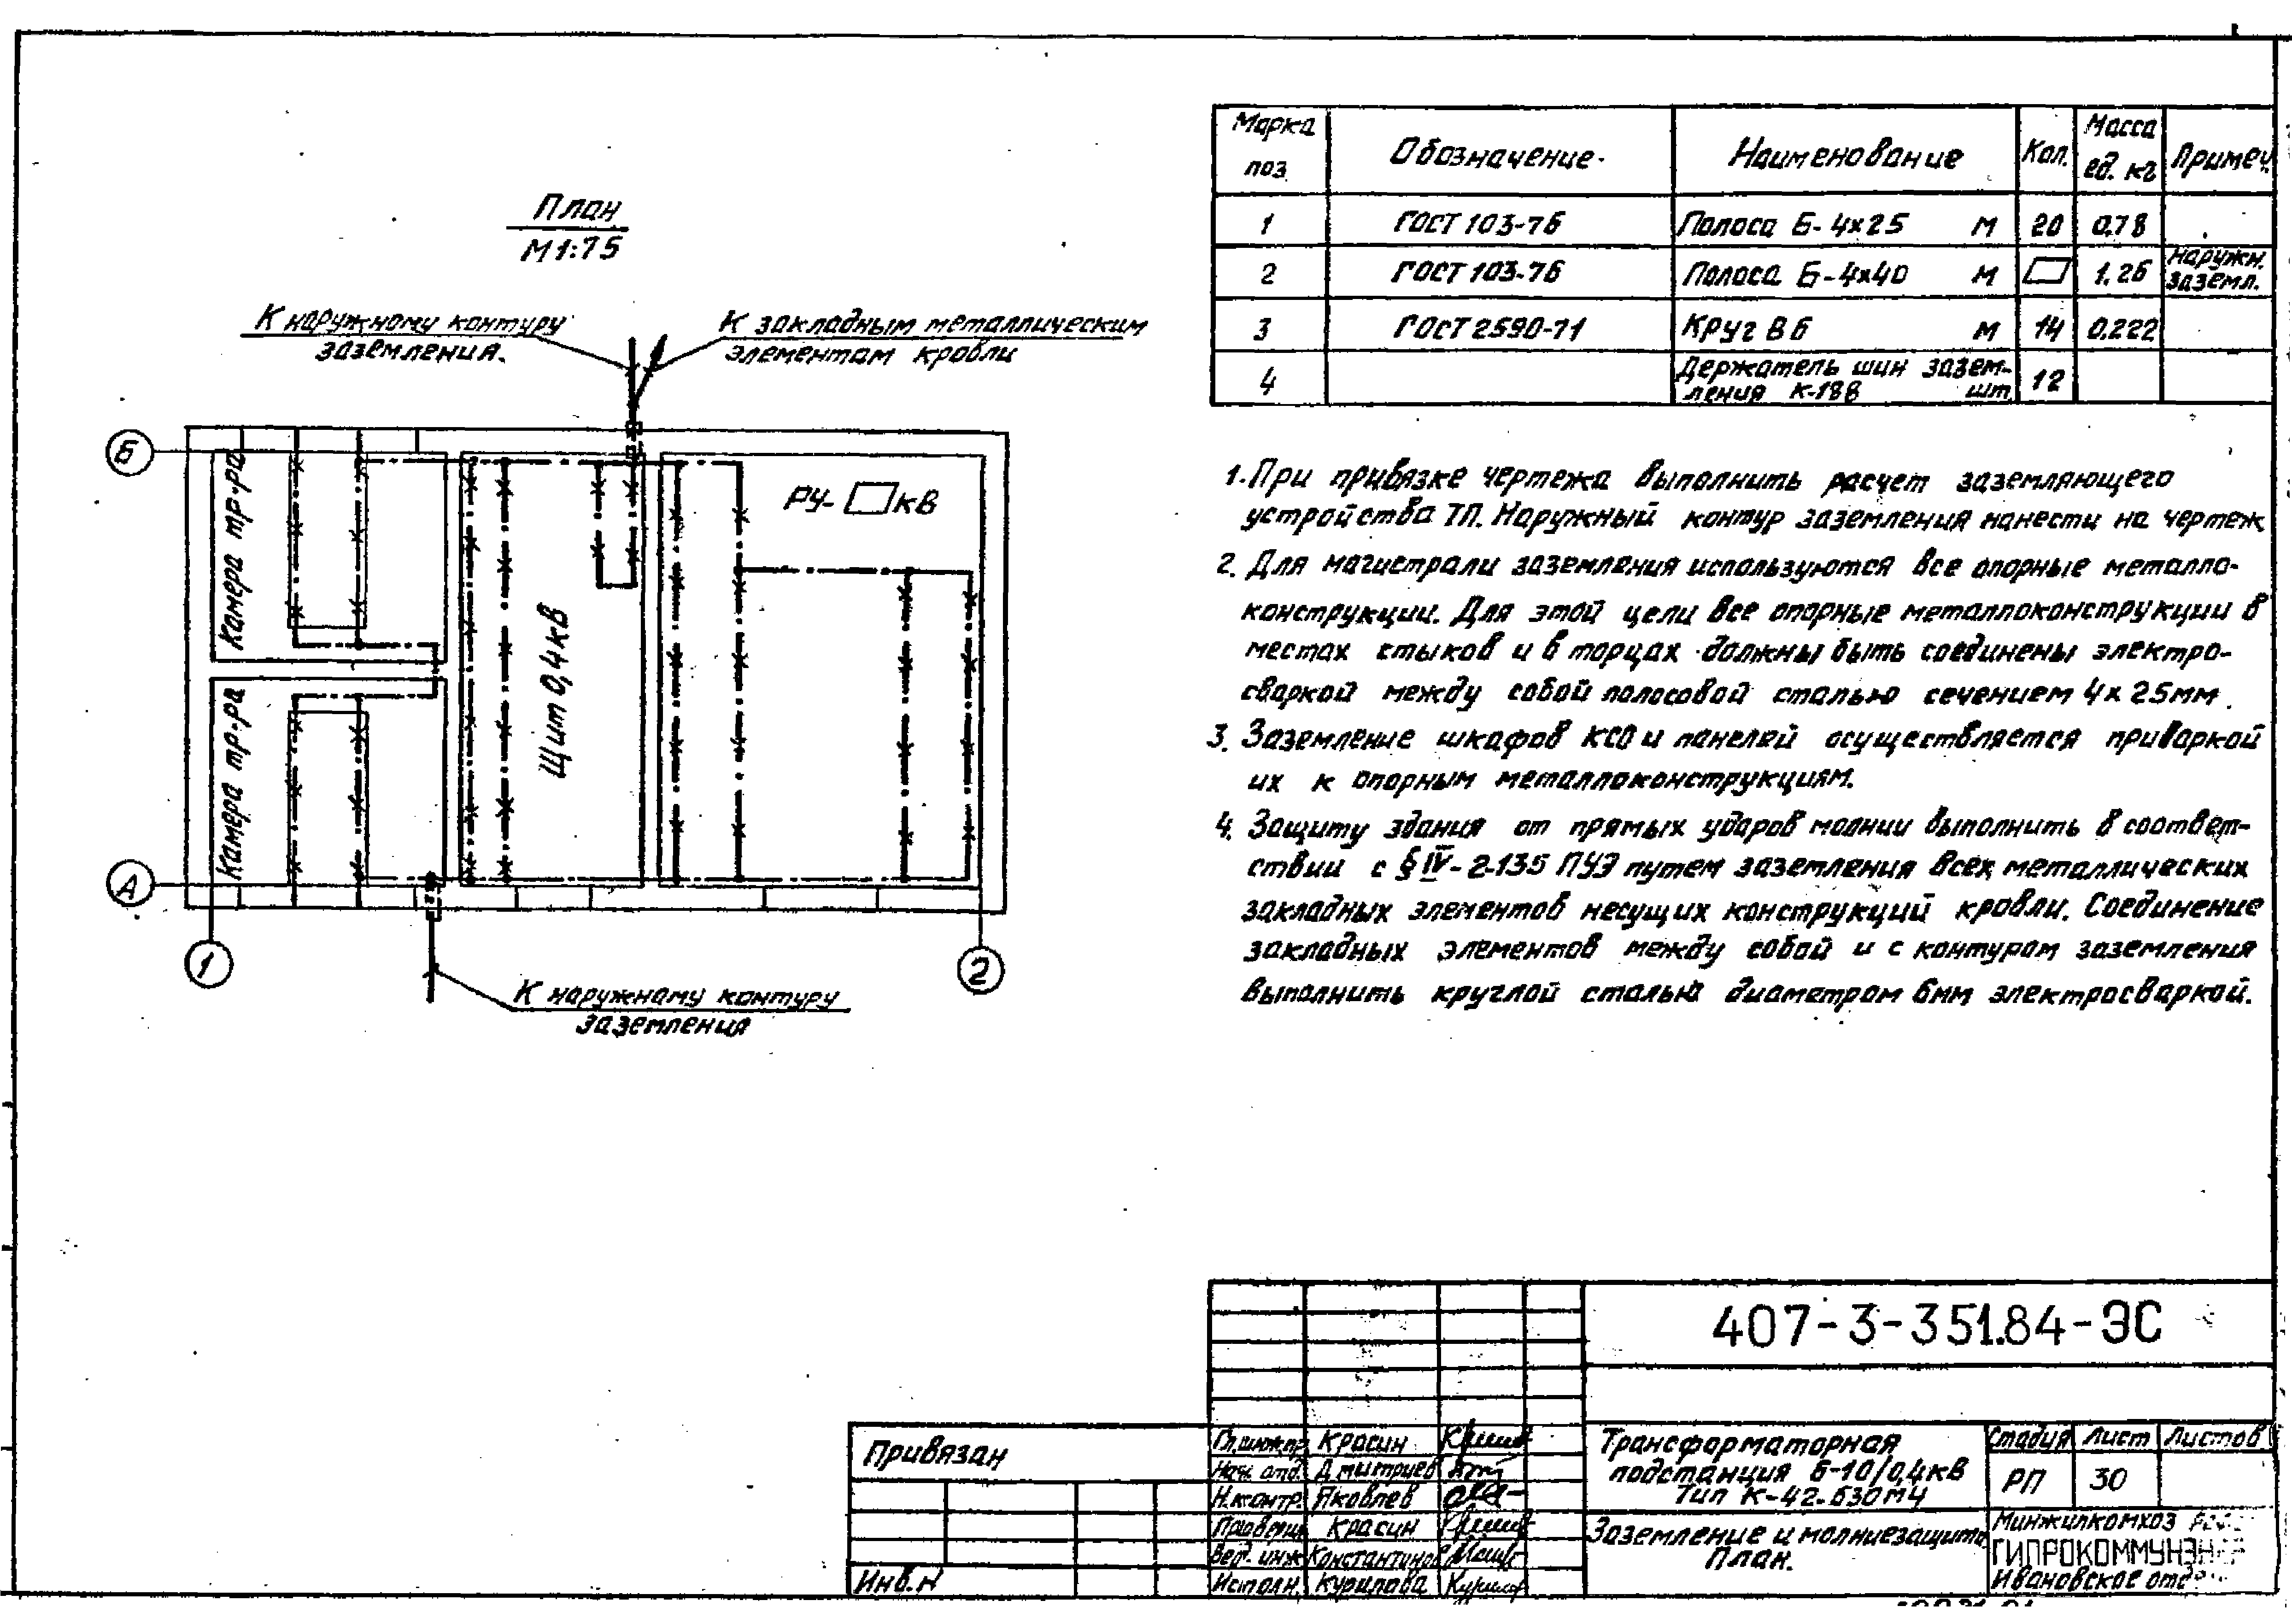 План
М 1:75
К наружному контуру
заземления.
К закладным металлическим
элементам кровли
Б
А
1
2
Камера тр-ра
Камера тр-ра
Щит 0,4 кВ
РУ- кВ
К наружному контуру
заземления
Марка поз. Обозначение Наименование Кол. Масса ед. кг Примеч.
1 ГОСТ 103-76 Полоса Б-4х25 м 20 0,78
2 ГОСТ 103-76 Полоса Б-4х40 м 1.26 Наружн. заземл.
3 ГОСТ 2590-71 Круг В6 м 14 0.222
4 Держатель шин зазем-
ления К-188 шт 12
1. При привязке чертежа выполнить расчет заземляющего
устройства ТП. Наружный контур заземления нанести на чертеж
2. Для магистрали заземления используются все опорные металло-
конструкции. Для этой цели все опорные металлоконструкции в
местах стыков и в торцах должны быть соединены электро-
сваркой между собой полосовой сталью сечением 4х25мм.
3. Заземление шкафов КСО и панелей осуществляется приваркой
их к опорным металлоконструкциям.
4. Защиту здания от прямых ударов молнии выполнить в соответ-
ствии с § IV-2-135 ПУЭ путем заземления всех металлических
закладных элементов несущих конструкций кровли. Соединение
закладных элементов между собой и с контуром заземления
выполнить круглой сталью диаметром 6мм электросваркой.
407-3-351.84-ЭС
Привязан
Инв.N
Гл.инж.пр. Красин
Нач. отд. Дмитриев
Н.контр. Яковлев
Провери Красин
Вед. инж. Константинов
Исполн. Курилова
Трансформаторная
подстанция 6-10/0,4кВ
Тип К-42-630М4
Стадия Лист Листов
РП 30
Заземление и молниезащита
План.
Минжилкомхоз
ГИПРОКОММУНЭН
Ивановское отд